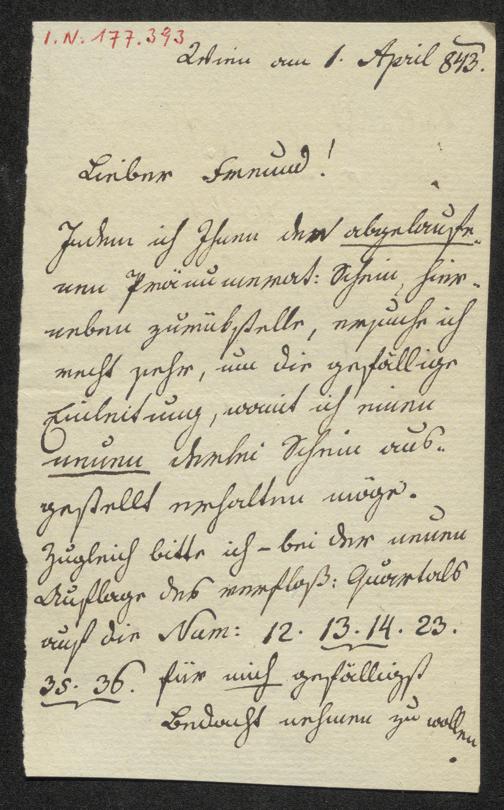 I.N. 177.393
Wien am 1. April 843.
Lieber Freund!
Indem ich Ihnen den abgelaufe-
nen Pränumerat: Schein hier-
neben zurückstelle, ersuche ich
recht sehr, um die gefällige
Einleitung, womit ich einen
neuen derlei Schein aus-
gestellt erhalten möge.
Zugleich bitte ich – bei der neuen
Auflage des verfloß: Quartals
auf die Num: 12. 13. 14. 23.
35. 36. für mich gefälligst
Bedacht nehmen zu wollen.